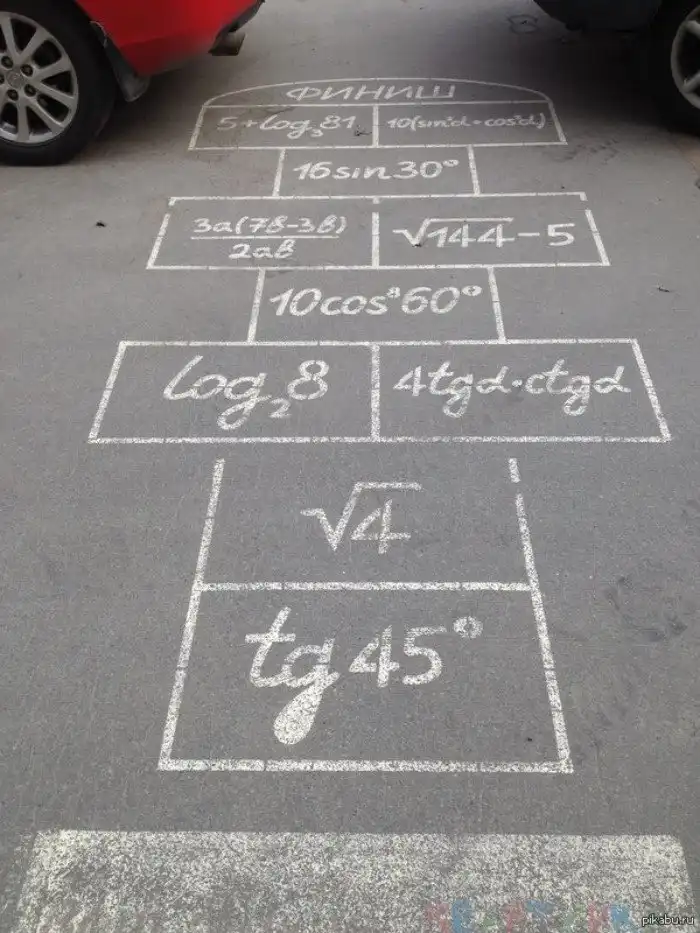 ФИНИШ
5+log₃81 10(sin²α+cos²α)
16sin30°
3a(7в-3в)
2aв
√144-5
10cos60°
log₂8 4tgα·ctgα
√4
tg45°
pikabu.ru